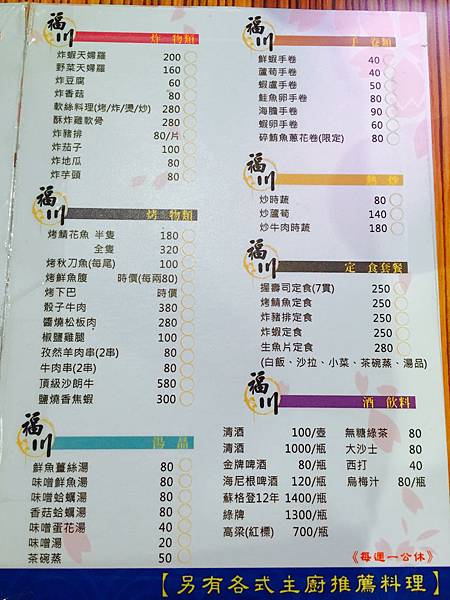 福川
炸 物類
炸蝦天婦羅 200
野菜天婦羅 160
炸豆腐 60
炸香菇 80
軟絲料理(烤/炸/燙/炒) 280
酥炸雞軟骨 280
炸豬排 80/片
炸茄子 100
炸地瓜 80
炸芋頭 80
福川
烤 物類
烤鯖花魚 半隻 180
全隻 320
烤秋刀魚(每尾) 100
烤鮮魚腹 時價(每兩80)
烤下巴 時價
骰子牛肉 380
醬燒松板肉 280
椒鹽雞腿 100
孜然羊肉串(2串) 80
牛肉串(2串) 80
頂級沙朗牛 580
鹽燒香焦蝦 300
福川
湯 品
鮮魚薑絲湯 80
味噌鮮魚湯 80
味噌蛤蠣湯 80
香菇蛤蠣湯 80
味噌蛋花湯 40
味噌湯 20
茶碗蒸 50
手 卷類
鮮蝦手卷 40
蘆筍手卷 40
蝦蘆手卷 50
鮭魚卵手卷 80
海膽手卷 90
蝦卵手卷 60
碎鮪魚蔥花卷(限定) 80
福川
熱 炒
炒時蔬 80
炒蘆筍 140
炒牛肉時蔬 180
福川
定 食套餐
握壽司定食(7貫) 250
烤鯖魚定食 250
炸豬排定食 250
炸蝦定食 250
生魚片定食 280
(白飯、沙拉、小菜、茶碗蒸、湯品)
福川
酒 飲料
清酒 100/壺
清酒 1000/瓶
金牌啤酒 80/瓶
海尼根啤酒 120/瓶
蘇格登12年 1400/瓶
綠牌 1300/瓶
高梁(紅標) 700/瓶
無糖綠茶 80
大沙士 80
西打 40
烏梅汁 80/瓶
《每週一公休》
【另有各式主廚推薦料理】